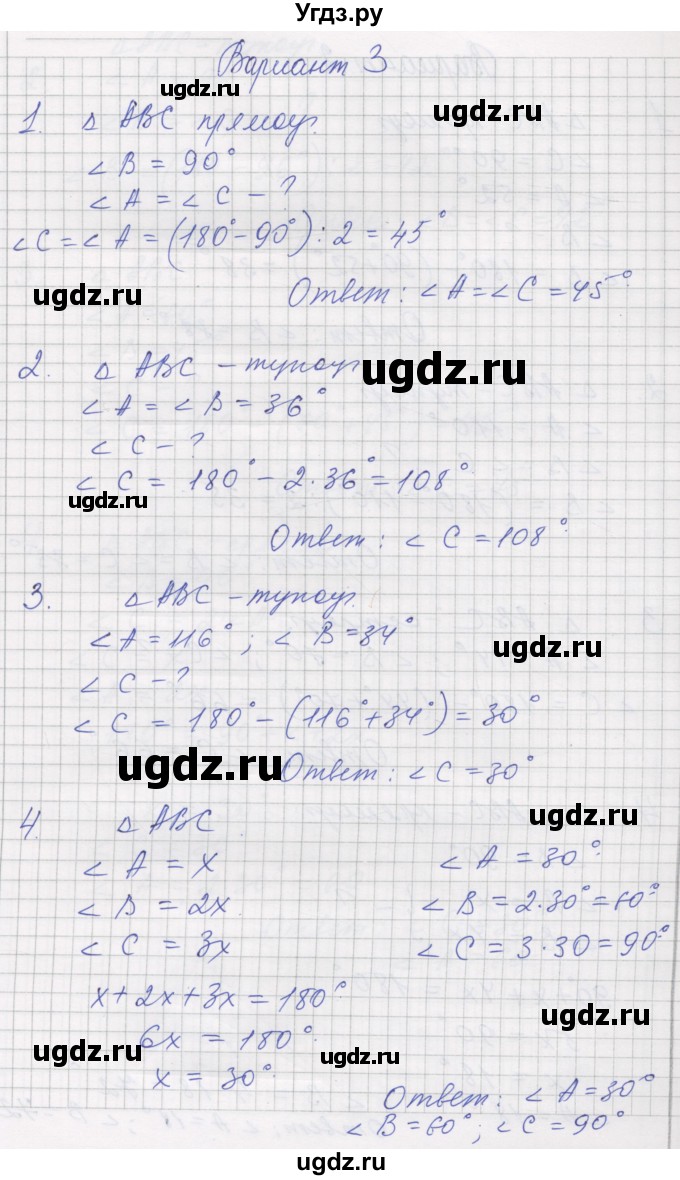 Угдз.ру
Вариант 3
ugdz.ru
ugdz.ru
1. △ ABC прямоуг.
∠B = 90°
∠A = ∠C - ?
∠C = ∠A = (180° - 90°) : 2 = 45°
ugdz.ru
ugdz.ru
Ответ: ∠A = ∠C = 45°.
2. △ ABC - тупоуг.
ugdz.ru
∠A = ∠B = 36°
∠C - ?
∠C = 180° - 2·36° = 108°.
ugdz.ru
Ответ: ∠C = 108°.
3. △ABC - тупоуг.
ugdz.ru
∠A = 116°; ∠B = 34°
ugdz.ru
∠C - ?
∠C = 180° - (116° + 34°) = 30°
ugdz.ru
Ответ: ∠C = 30°
4. △ABC
ugdz.ru
∠A = x ∠A = 30°.
∠B = 2x ∠B = 2·30° = 60°.
∠C = 3x ∠C = 3·30 = 90°.
x + 2x + 3x = 180°.
ugdz.ru
6x = 180°.
ugdz.ru
ugdz.ru
x = 30°.
Ответ: ∠A = 30°
∠B = 60°; ∠C = 90°
ugdz.ru